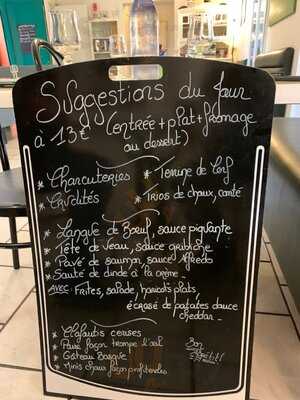 Suggestions du Jour
à 13€ (entrée + plat + fromage
ou dessert)
* Charcuteries * Terrine de Cerf
* Crudités * Trios de choux, comté
* Langue de Boeuf, sauce piquante
* Tête de veau, sauce gribiche
* Pavé de saumon, sauce Alfredo
* Sauté de dinde à la crème -
AVEC: Frites, salade, haricots plats,
écrasé de patates douce
cheddar -
* Clafoutis cerises
* Poire façon trompe l'oeil
* Gâteau Basque
* Minis choux façon profiteroles
Bon
Appétit!